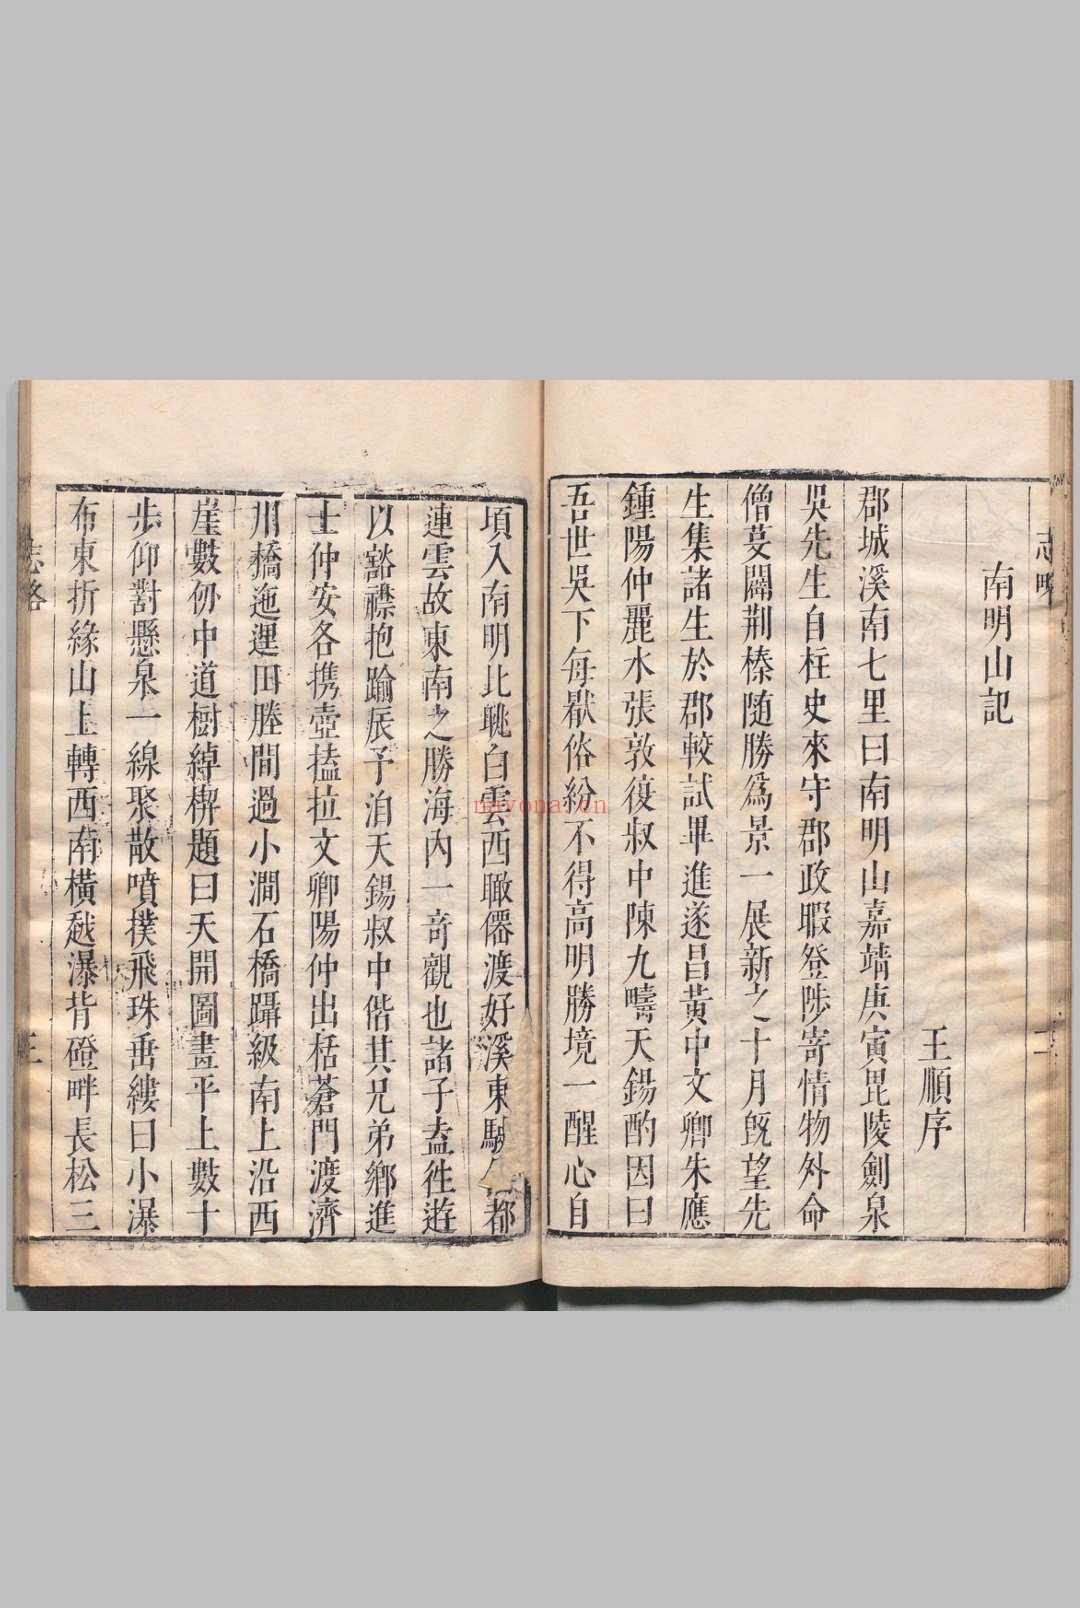 志畧
南明山記
王順序
郡城溪南七里曰南明山嘉靖庚寅毘陵劍泉
吳先生自柱史來守郡政暇登陟寄情物外命
僧芟闢荆榛随勝爲景一展新之十月既望先
生集諸生於郡較試畢進遂昌黃中文卿朱應
鍾陽仲麗水張敦復叔中陳九疇天錫酌因曰
吾世吳下每厭俗紛不得高明勝境一醒心自
二
頃入南明北眺白雲西瞰僊渡好溪東駛 都
連雲故東南之勝海内一竒觀也諸子盍徃遊
以豁襟抱踰辰予洎天錫叔中偕其兄弟鄉進
士仲安各携壺榼拉文卿陽仲出栝蒼門渡濟
川橋迤邐田塍間過小澗石橋躡級南上沿西
崖數仞中道樹綽楔題曰天開圖畫平上數十
步仰對懸泉一線聚散噴撲飛珠垂縷曰小瀑
布東折緣山上轉西南橫越瀑背磴畔長松三
志畧
三
miyona.cn